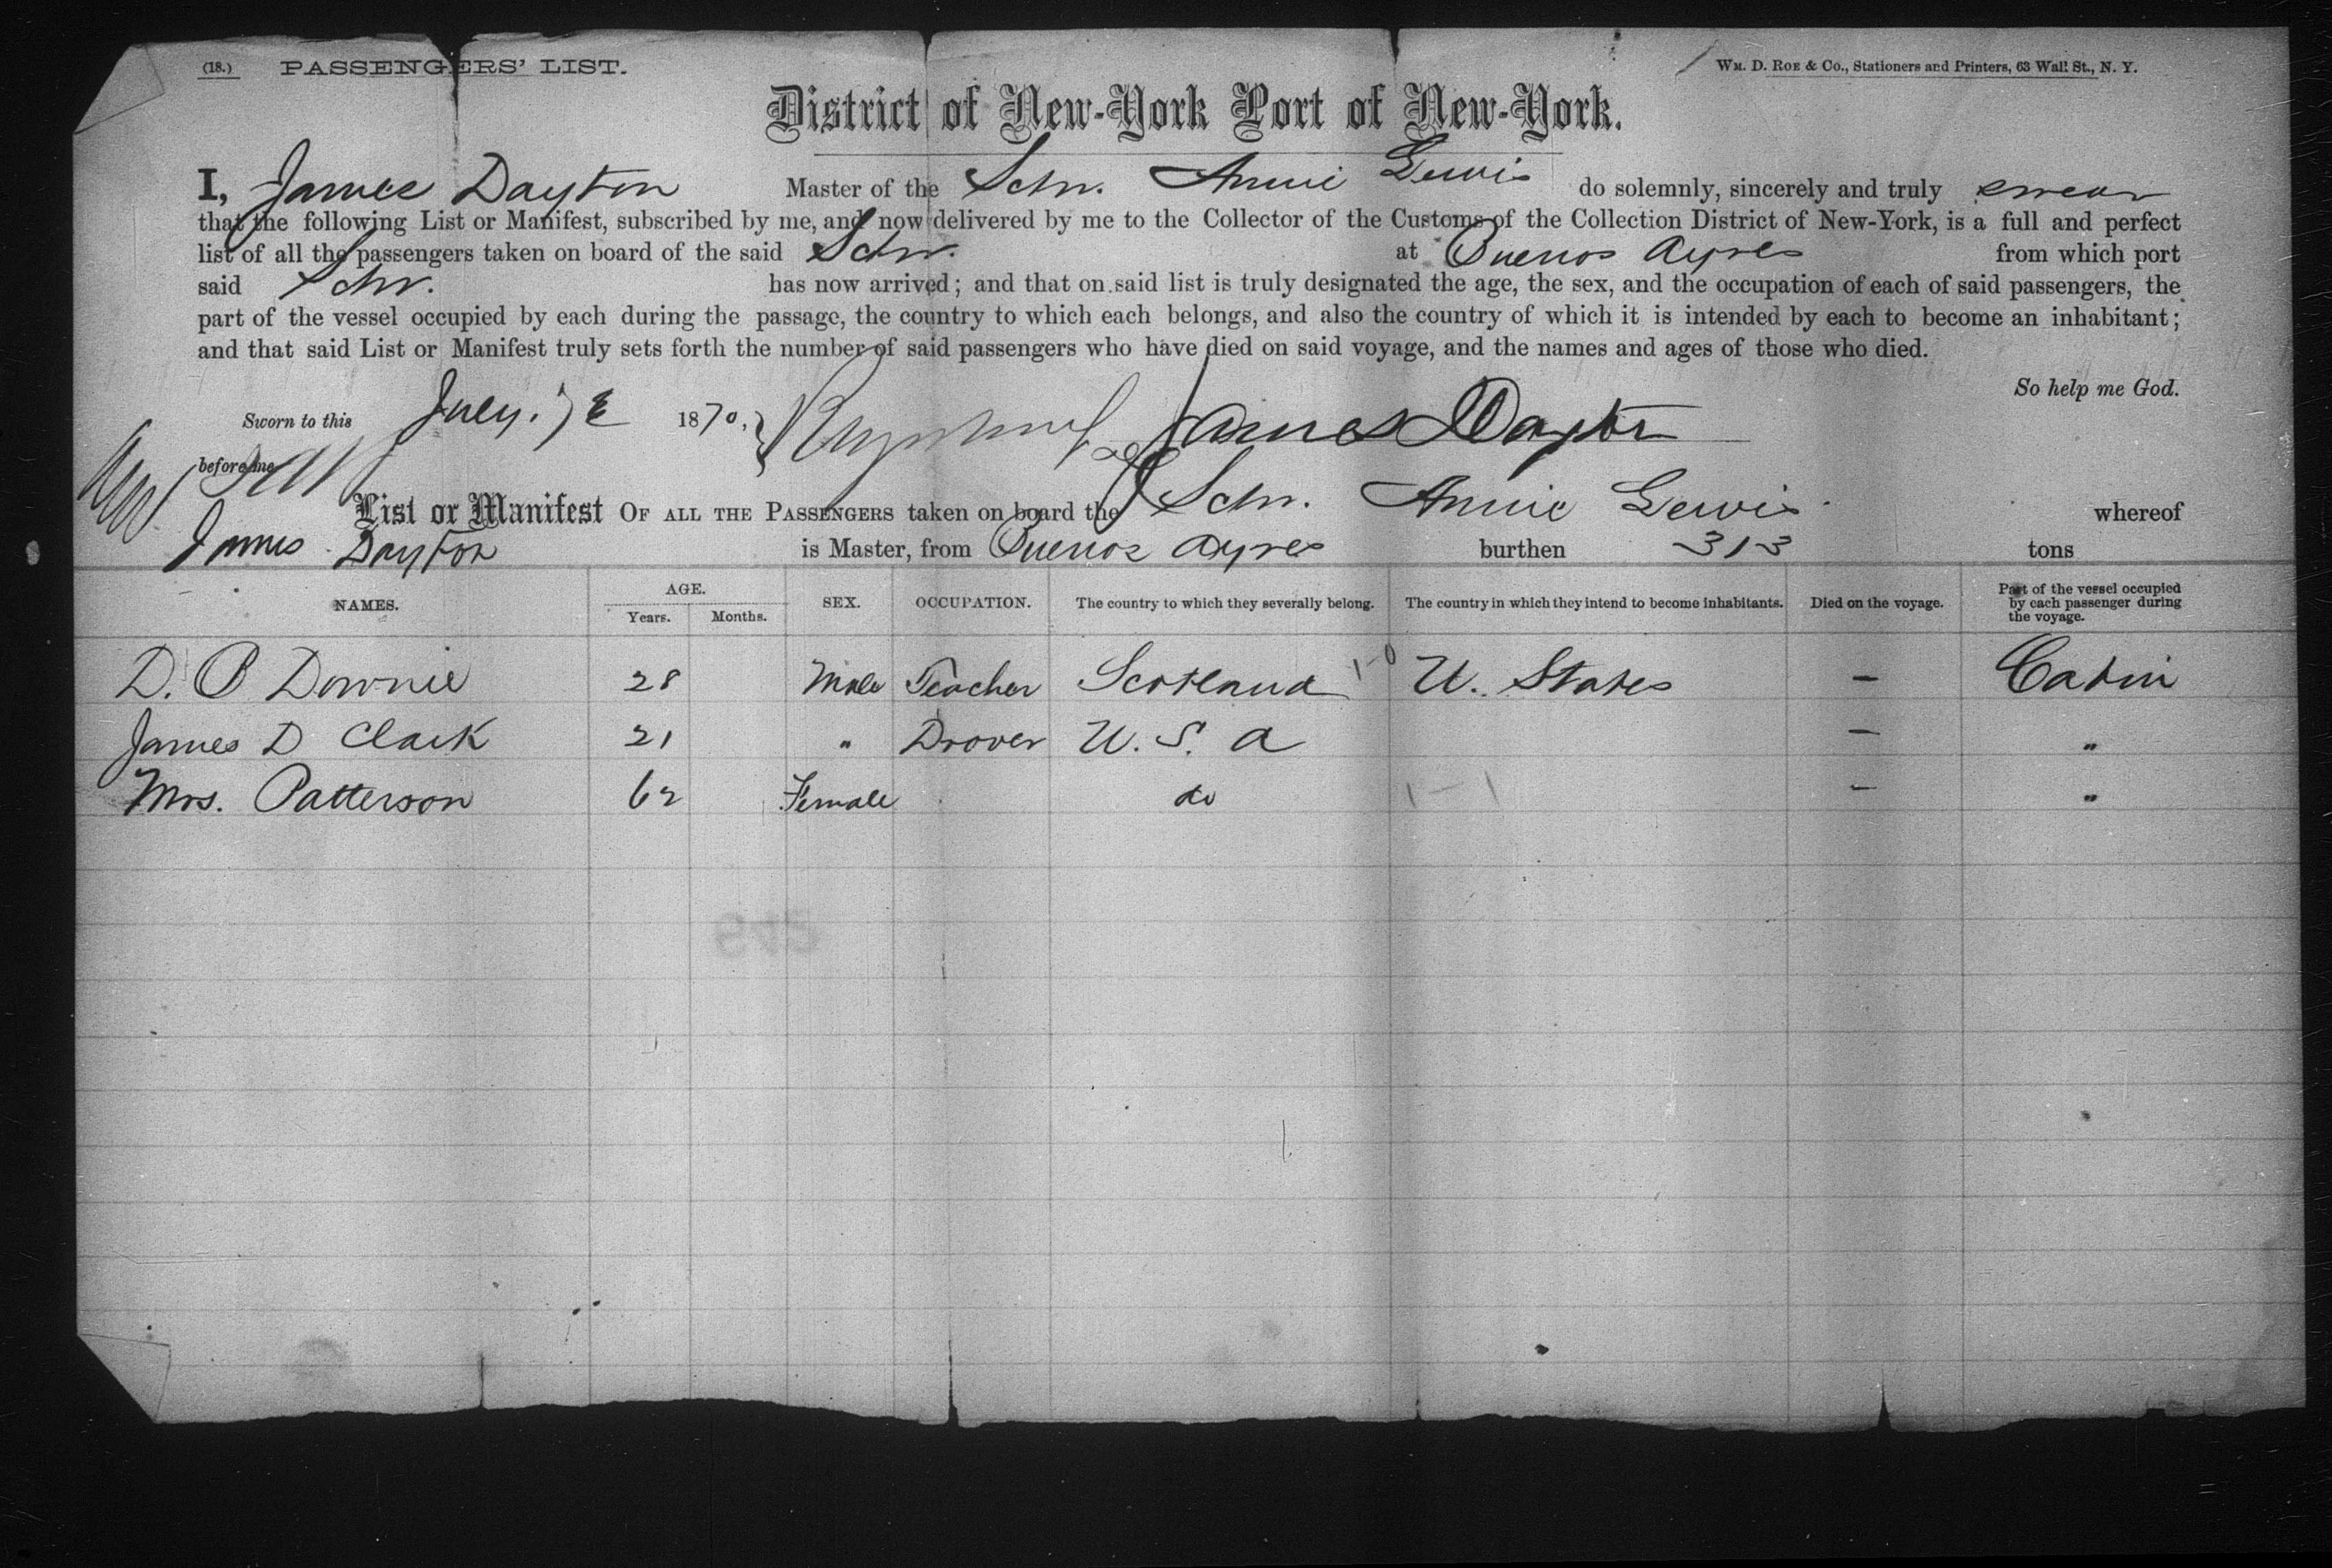 (18.) PASSENGERS' LIST. WM. D. ROE & CO., Stationers and Printers, 63 Wall St., N. Y.
District of New-York Port of New-York.
I, James Dayton Master of the Schr. Annie Lewis do solemnly, sincerely and truly swear
that the following List or Manifest, subscribed by me, and now delivered by me to the Collector of the Customs of the Collection District of New-York, is a full and perfect
list of all the passengers taken on board of the said Schr. at Buenos Ayres from which port
said Schr. has now arrived; and that on said list is truly designated the age, the sex, and the occupation of each of said passengers, the
part of the vessel occupied by each during the passage, the country to which each belongs, and also the country of which it is intended by each to become an inhabitant;
and that said List or Manifest truly sets forth the number of said passengers who have died on said voyage, and the names and ages of those who died.
So help me God.
Sworn to this July. 1870, James Dayton
before me
List or Manifest OF ALL THE PASSENGERS taken on board the Schr. Annie Lewis whereof
James Dayton is Master, from Buenos Ayres burthen 313 tons
NAMES. AGE. Years. Months. SEX. OCCUPATION. The country to which they severally belong. The country in which they intend to become inhabitants. Died on the voyage. Part of the vessel occupied by each passenger during the voyage.
D. P Downie 28 Male Teacher Scotland 1-0 U. States – Cabin
James D Clark 21 " Drover U. S. A – "
Mrs. Patterson 62 Female do 1-1 – "